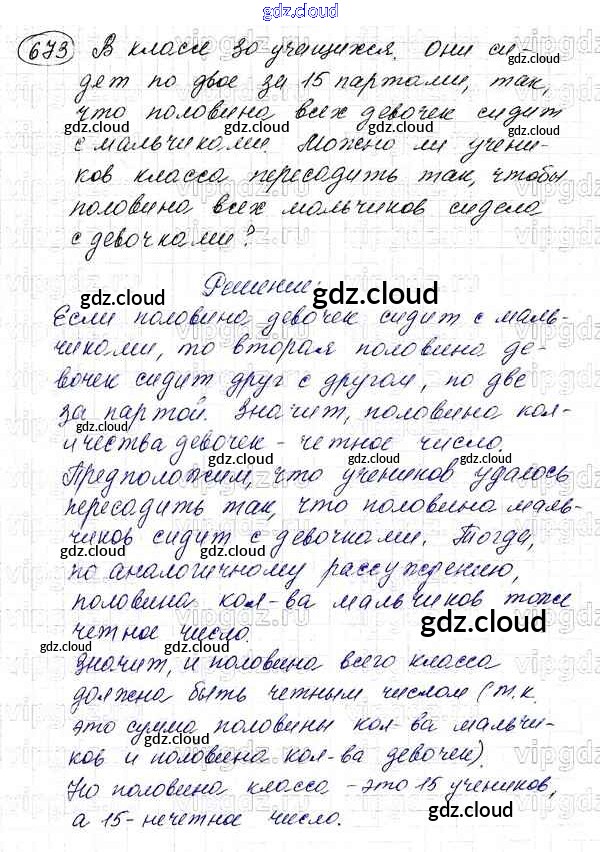 gdz.cloud
673 В классе 30 учащихся. Они си-
дят по двое за 15 партами, так,
что половина всех девочек сидит
с мальчиками. Можно ли учени-
ков класса пересадить так, чтобы
половина всех мальчиков сидела
с девочками?
Решение:
Если половина девочек сидит с маль-
чиками, то вторая половина де-
вочек сидит друг с другом, по две
за партой. Значит, половина кол-
ичества девочек - четное число.
Предположим, что учеников удалось
пересадить так, что половина маль-
чиков сидит с девочками. Тогда,
по аналогичному рассуждению,
половина кол-ва мальчиков тоже
четное число.
Значит, и половина всего класса
должна быть четным числом (т.к.
это сумма половины кол-ва мальчи-
ков и половина кол-ва девочек).
Но половина класса - это 15 учеников,
а 15 - нечетное число.